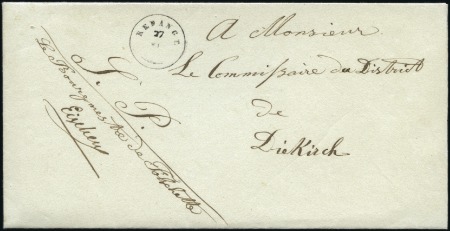 REDANGE
27
A Monsieur
Le Commissaire du District
de
Diekirch
S. P.
Le Bourgmestre de
Eischen